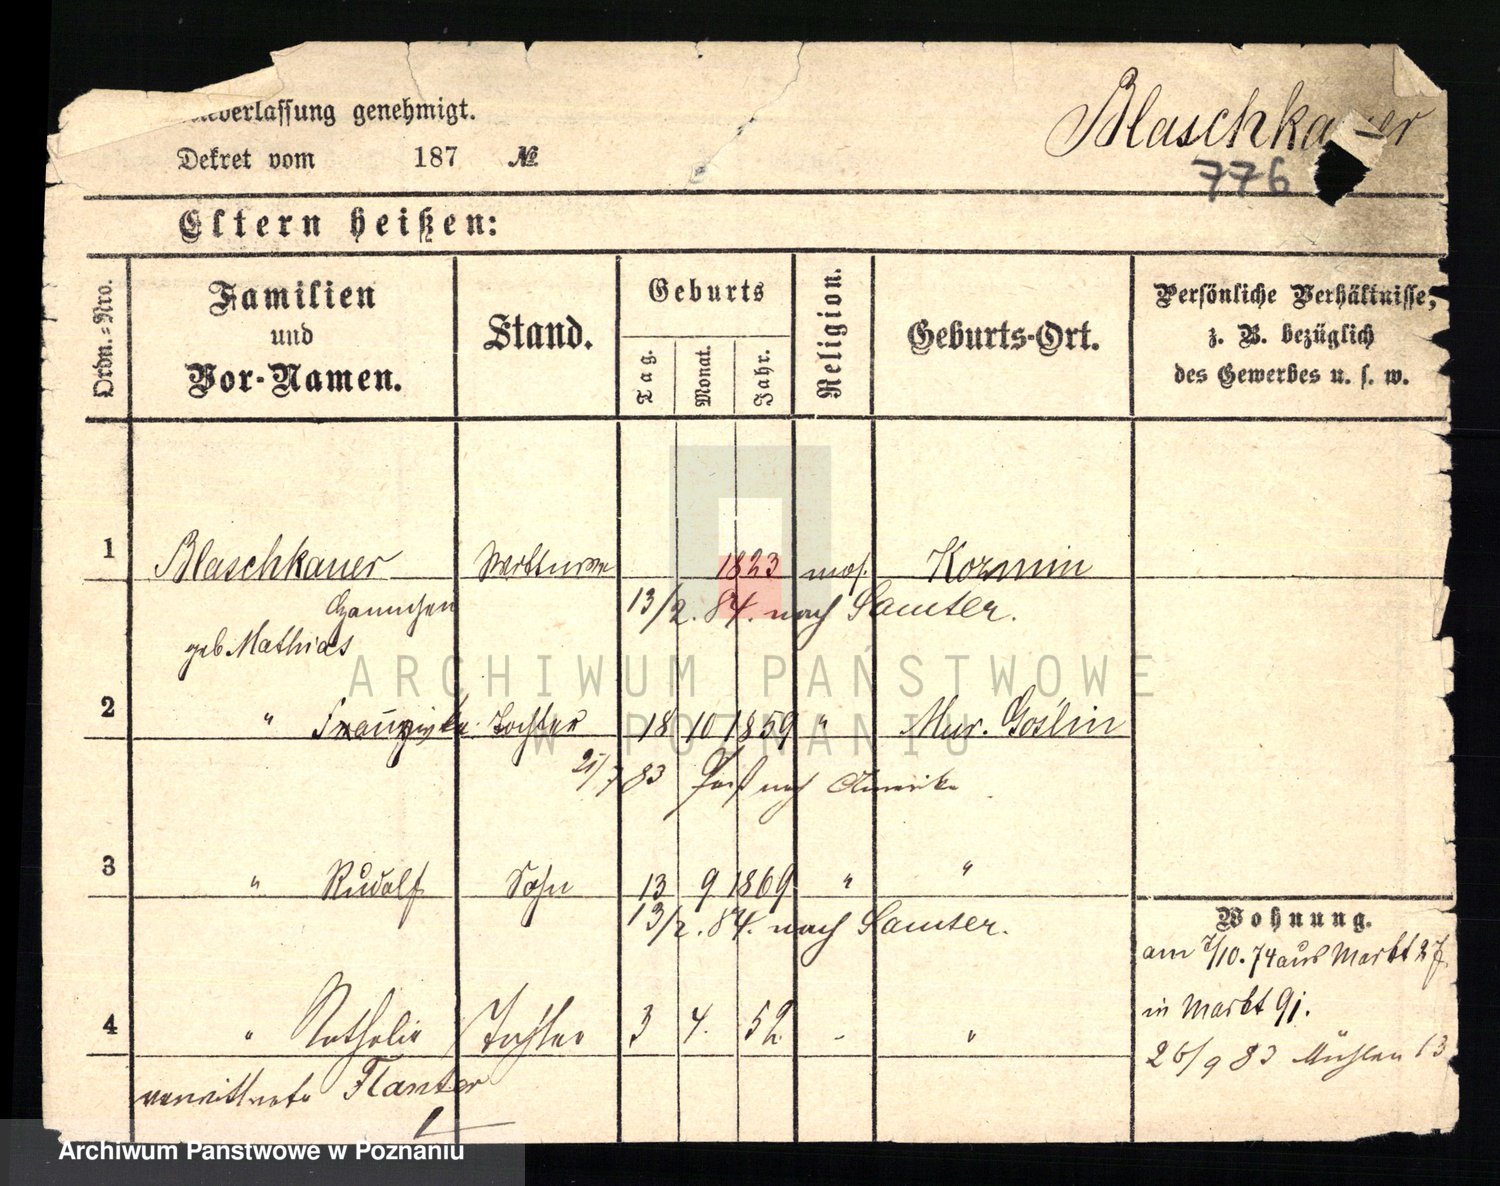 Niederlassung genehmigt.
Dekret vom 187 №
Blaschkauer
776
Eltern heißen:
Ordn.=Nro.
Familien und Vor-Namen.
Stand.
Geburts
Tag.
Monat.
Jahr.
Religion.
Geburts-Ort.
Persönliche Verhältnisse,
z. B. bezüglich
des Gewerbes u. s. w.
1 Blaschkauer 1823 mos. Kozmin
13/2. 84. nach Samter.
geb Mathias
2 " Franziska Tochter 18 10 1859 " Mur. Goslin
21/7 83 Paß nach Amerika
3 " Rudolf Sohn 13 9 1869 " "
13/2. 84. nach Samter.
4 " Nathalie Tochter 3 4. 52 - "
Flanter
Wohnung.
am 7/10. 74 aus Markt 27
in Markt 91.
26/9 83 Mühlen 13
ARCHIWUM PAŃSTWOWE
W POZNANIU
Archiwum Państwowe w Poznaniu